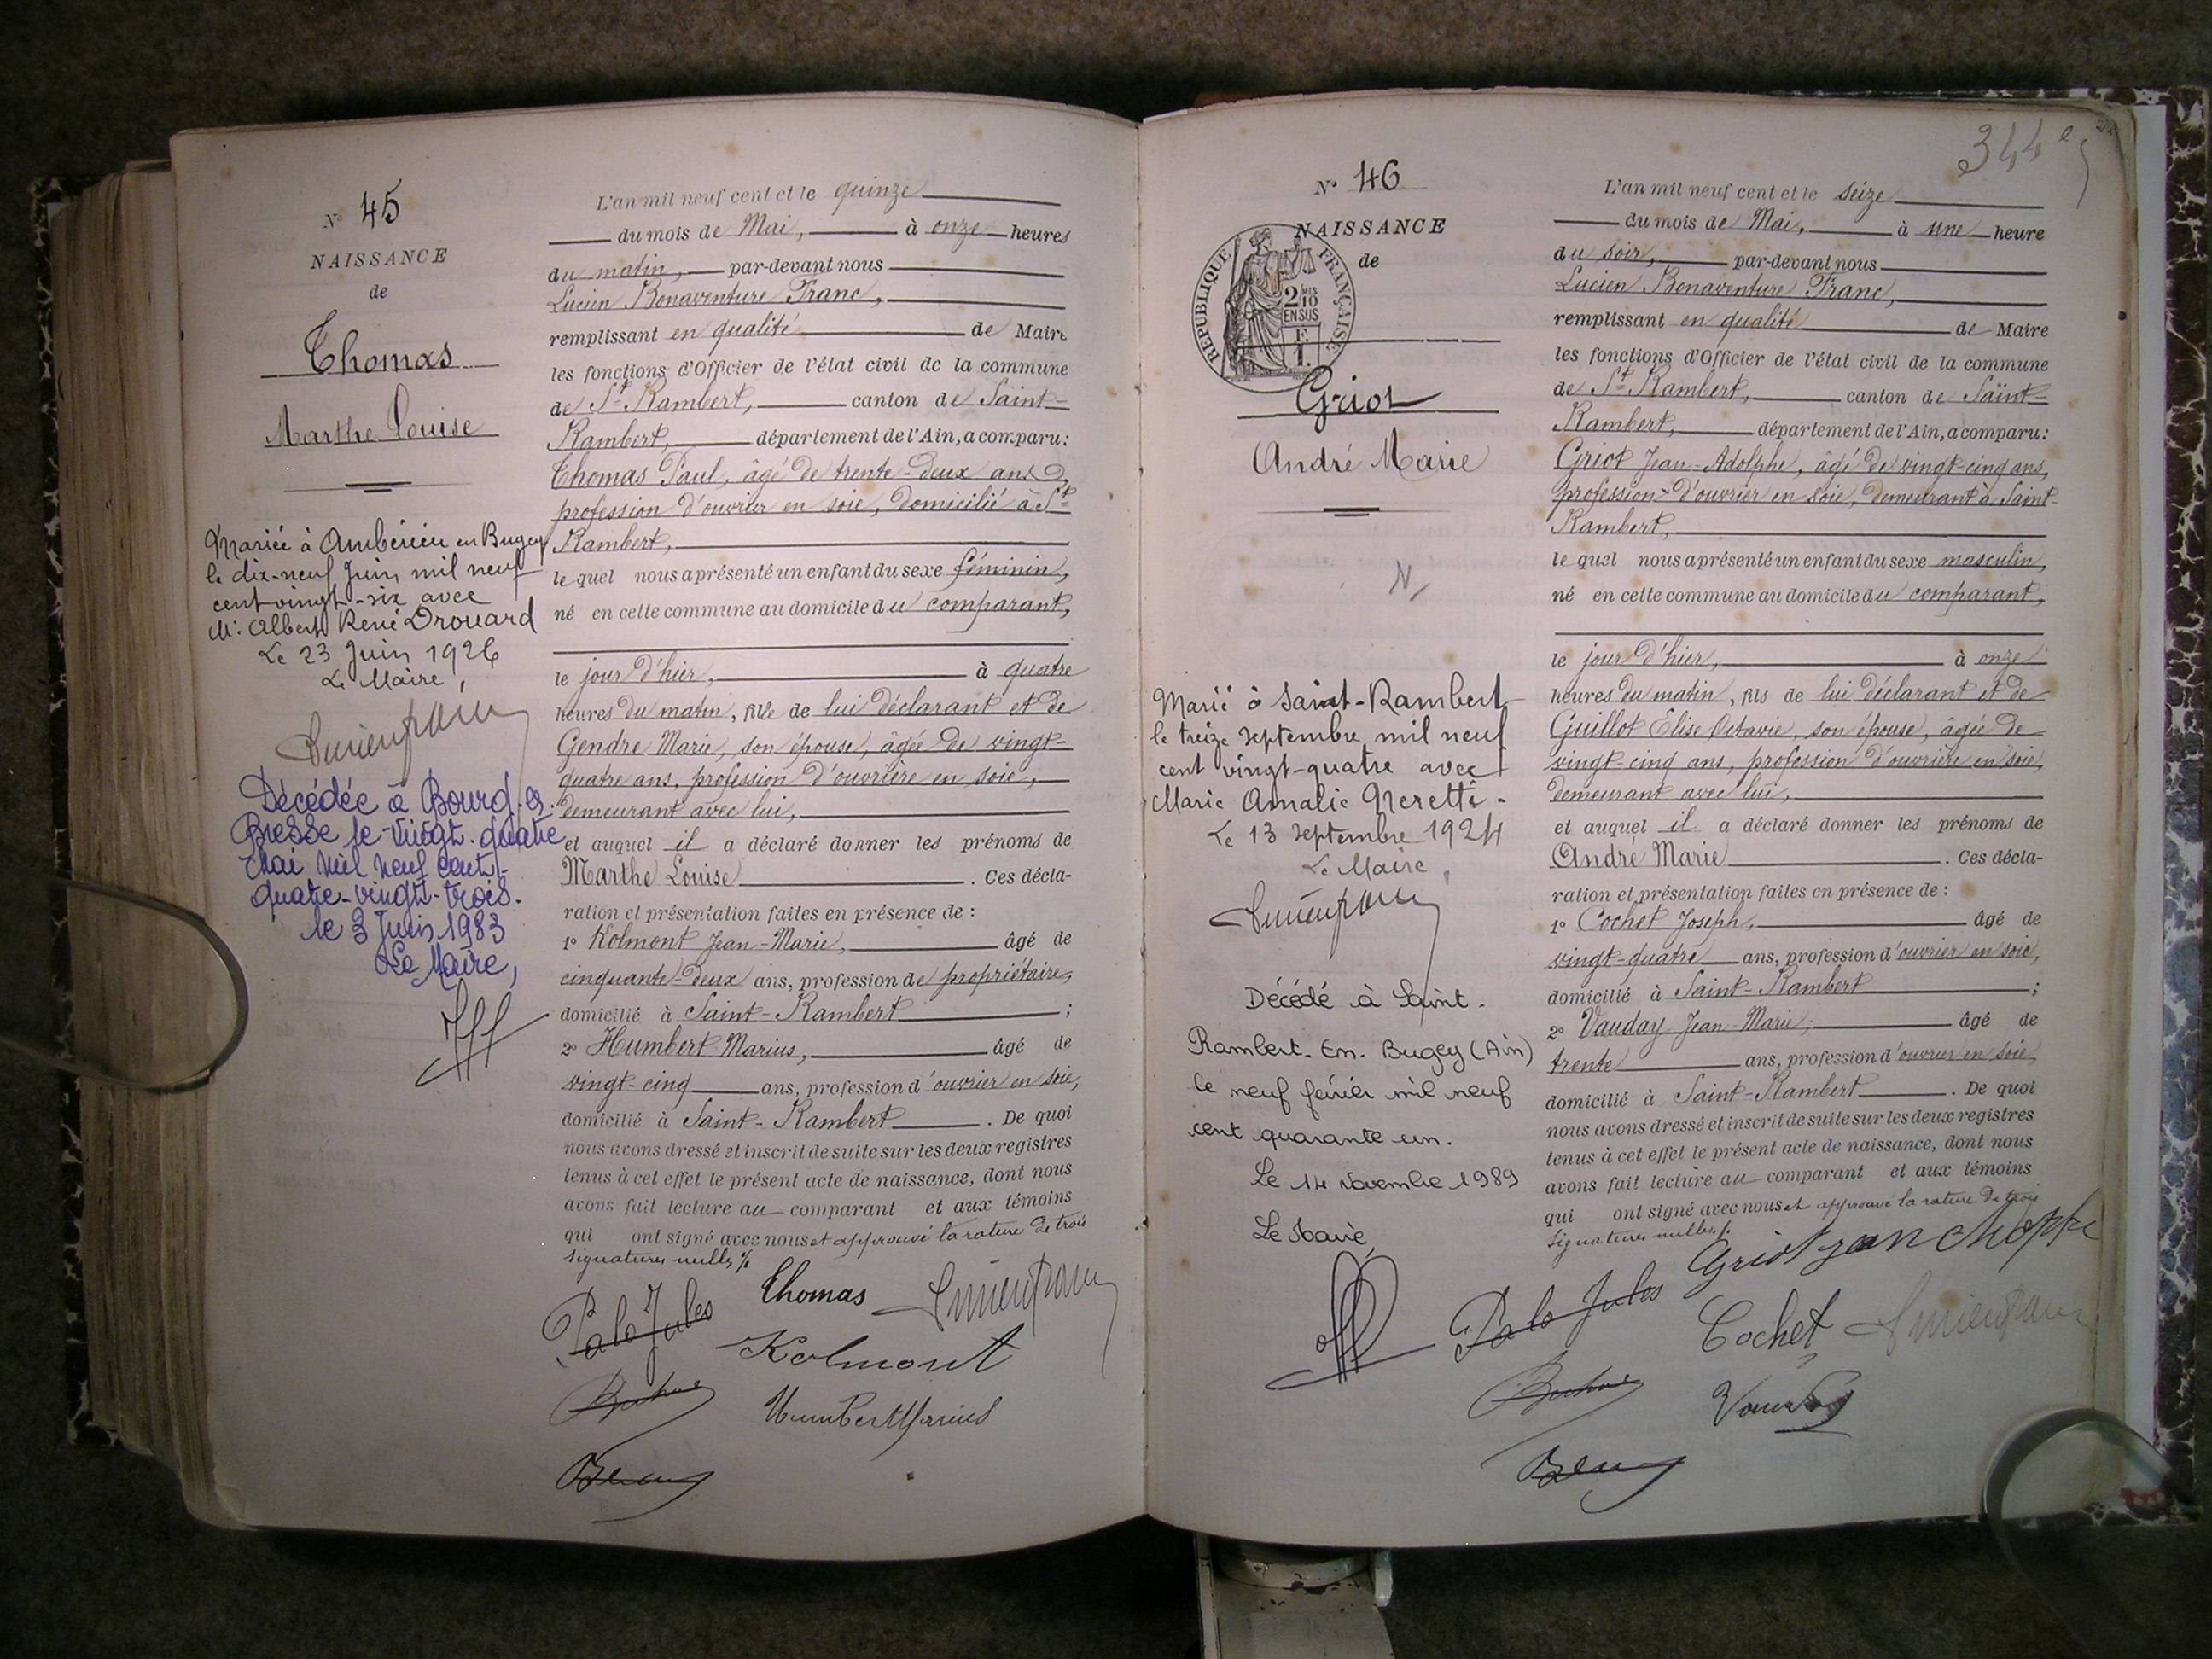 N° 45
NAISSANCE
de
Thomas
Marthe Louise
Mariée à Ambérieu en Bugey
le dix-neuf Juin mil neuf
cent vingt-six avec
Mr Albert René Drouard
Le 23 Juin 1926
Le Maire,
Décédée à Bourg. en.
Bresse le vingt. quatre
Mai mil neuf cent
quatre-vingt-trois.
le 3 Juin 1983
Le Maire,
L'an mil neuf cent et le quinze
du mois de Mai, à onze heures
du matin, par-devant nous
Lucien Bonaventure Franc,
remplissant en qualité de Maire
les fonctions d'Officier de l'état civil de la commune
de St Rambert, canton de Saint-
Rambert, département de l'Ain, a comparu:
Thomas Paul, âgé de trente-deux ans
profession d'ouvrier en soie, domicilié à St
Rambert,
le quel nous a présenté un enfant du sexe féminin,
né en cette commune au domicile du comparant,
le jour d'hier, à quatre
heures du matin, fille de lui déclarant et de
Gendre Marie, son épouse, âgée de vingt-
quatre ans, profession d'ouvrière en soie,
demeurant avec lui,
et auquel il a déclaré donner les prénoms de
Marthe Louise. Ces décla-
ration et présentation faites en présence de :
1° Kolmont Jean-Marie, âgé de
cinquante-deux ans, profession de propriétaire,
domicilié à Saint-Rambert ;
2° Humbert Marius, âgé de
vingt-cinq ans, profession d'ouvrier en soie,
domicilié à Saint-Rambert. De quoi
nous avons dressé et inscrit de suite sur les deux registres
tenus à cet effet le présent acte de naissance, dont nous
avons fait lecture au comparant et aux témoins
qui ont signé avec nous et approuvé la rature de trois
signatures nulles
Thomas
Jules
Kolmont
Humbert Marius
344
N° 46
NAISSANCE
de
REPUBLIQUE FRANÇAISE
2 MES 10
EN SUS
F
1.
Griot
André Marie
N
Marié à Saint-Rambert
le treize septembre mil neuf
cent vingt-quatre avec
Marie Amalie Neretti.
Le 13 septembre 1924
Le Maire,
Décédé à Saint.
Rambert. En. Bugey (Ain)
le neuf février mil neuf
cent quarante un.
Le 14 novembre 1989
Le Maire
L'an mil neuf cent et le seize
du mois de Mai, à une heure
du soir, par-devant nous
Lucien Bonaventure Franc,
remplissant en qualité de Maire
les fonctions d'Officier de l'état civil de la commune
de St Rambert, canton de Saint-
Rambert, département de l'Ain, a comparu:
Griot Jean-Adolphe, âgé de vingt-cinq ans,
profession d'ouvrier en soie, demeurant à Saint-
Rambert,
le quel nous a présenté un enfant du sexe masculin,
né en cette commune au domicile du comparant,
le jour d'hier, à onze
heures du matin, fils de lui déclarant et de
Guillot Elise Octavie, son épouse, âgée de
vingt-cinq ans, profession d'ouvrière en soie,
demeurant avec lui,
et auquel il a déclaré donner les prénoms de
André Marie. Ces décla-
ration et présentation faites en présence de :
1° Cochet Joseph, âgé de
vingt-quatre ans, profession d'ouvrier en soie,
domicilié à Saint-Rambert ;
2° Vauday Jean-Marie, âgé de
trente ans, profession d'ouvrier en soie,
domicilié à Saint-Rambert. De quoi
nous avons dressé et inscrit de suite sur les deux registres
tenus à cet effet le présent acte de naissance, dont nous
avons fait lecture au comparant et aux témoins
qui ont signé avec nous et approuvé la rature de trois
signatures nulles
Griot jean
Jules
Cochet